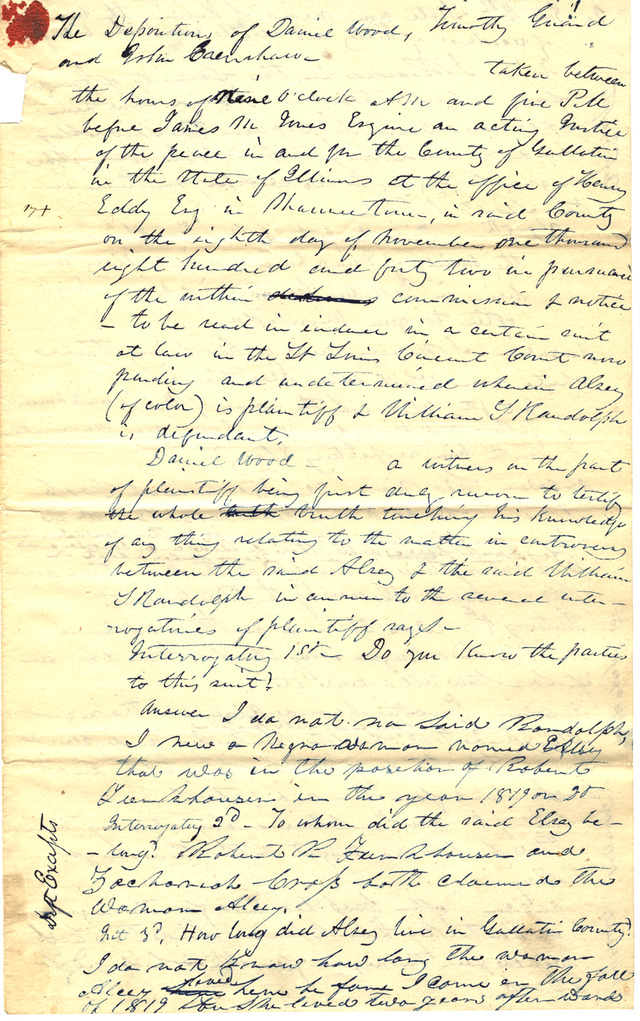 The Depositions of Daniel Wood, Timothy Guard
and John Crenshaw – taken between
the hours of Nine O'clock AM and five P.M
before James M Jones Esquire an acting Justice
of the peace in and for the County of Gallatin
in the State of Illinois at the office of Henry
Eddy Esq in Shawneetown, in said County
on the eighth day of November one thousand
eight hundred and forty two in pursuance
of the within commission & notice
– to be read in evidence in a certain suit
at law in the St Louis Circuit Court now
pending and undetermined wherein Alsey
(of color) is plaintiff & William S Randolph
is defendant,
Daniel Wood – a witness on the part
of plaintiff being first duly sworn to testify
the whole truth truth touching his knowledge
of any thing relating to the matter in controversy
between the said Alsey & the said William
S Randolph in answer to the several inter–
rogatories of plaintiff says–
Interrogatory 1st – Do you Know the parties
to this suit?
Answer I do not no Said Randolph,
I new a Negro woman named
that was in the posetion of Robert
Funkhouser in the year 1819 or 20
Interrogatory 2d – To whom did the said Elsey be–
–long? Robert R Funkhouser and
Zachariah Cross both claimed the
Woman Alcey.
Int 3d, How long did Alsey live in Gallatin County?
I do not know how long the woman
Alcey lived here be fore I come in the fall
of 1819 She lived two years after wards
Deft Excepts